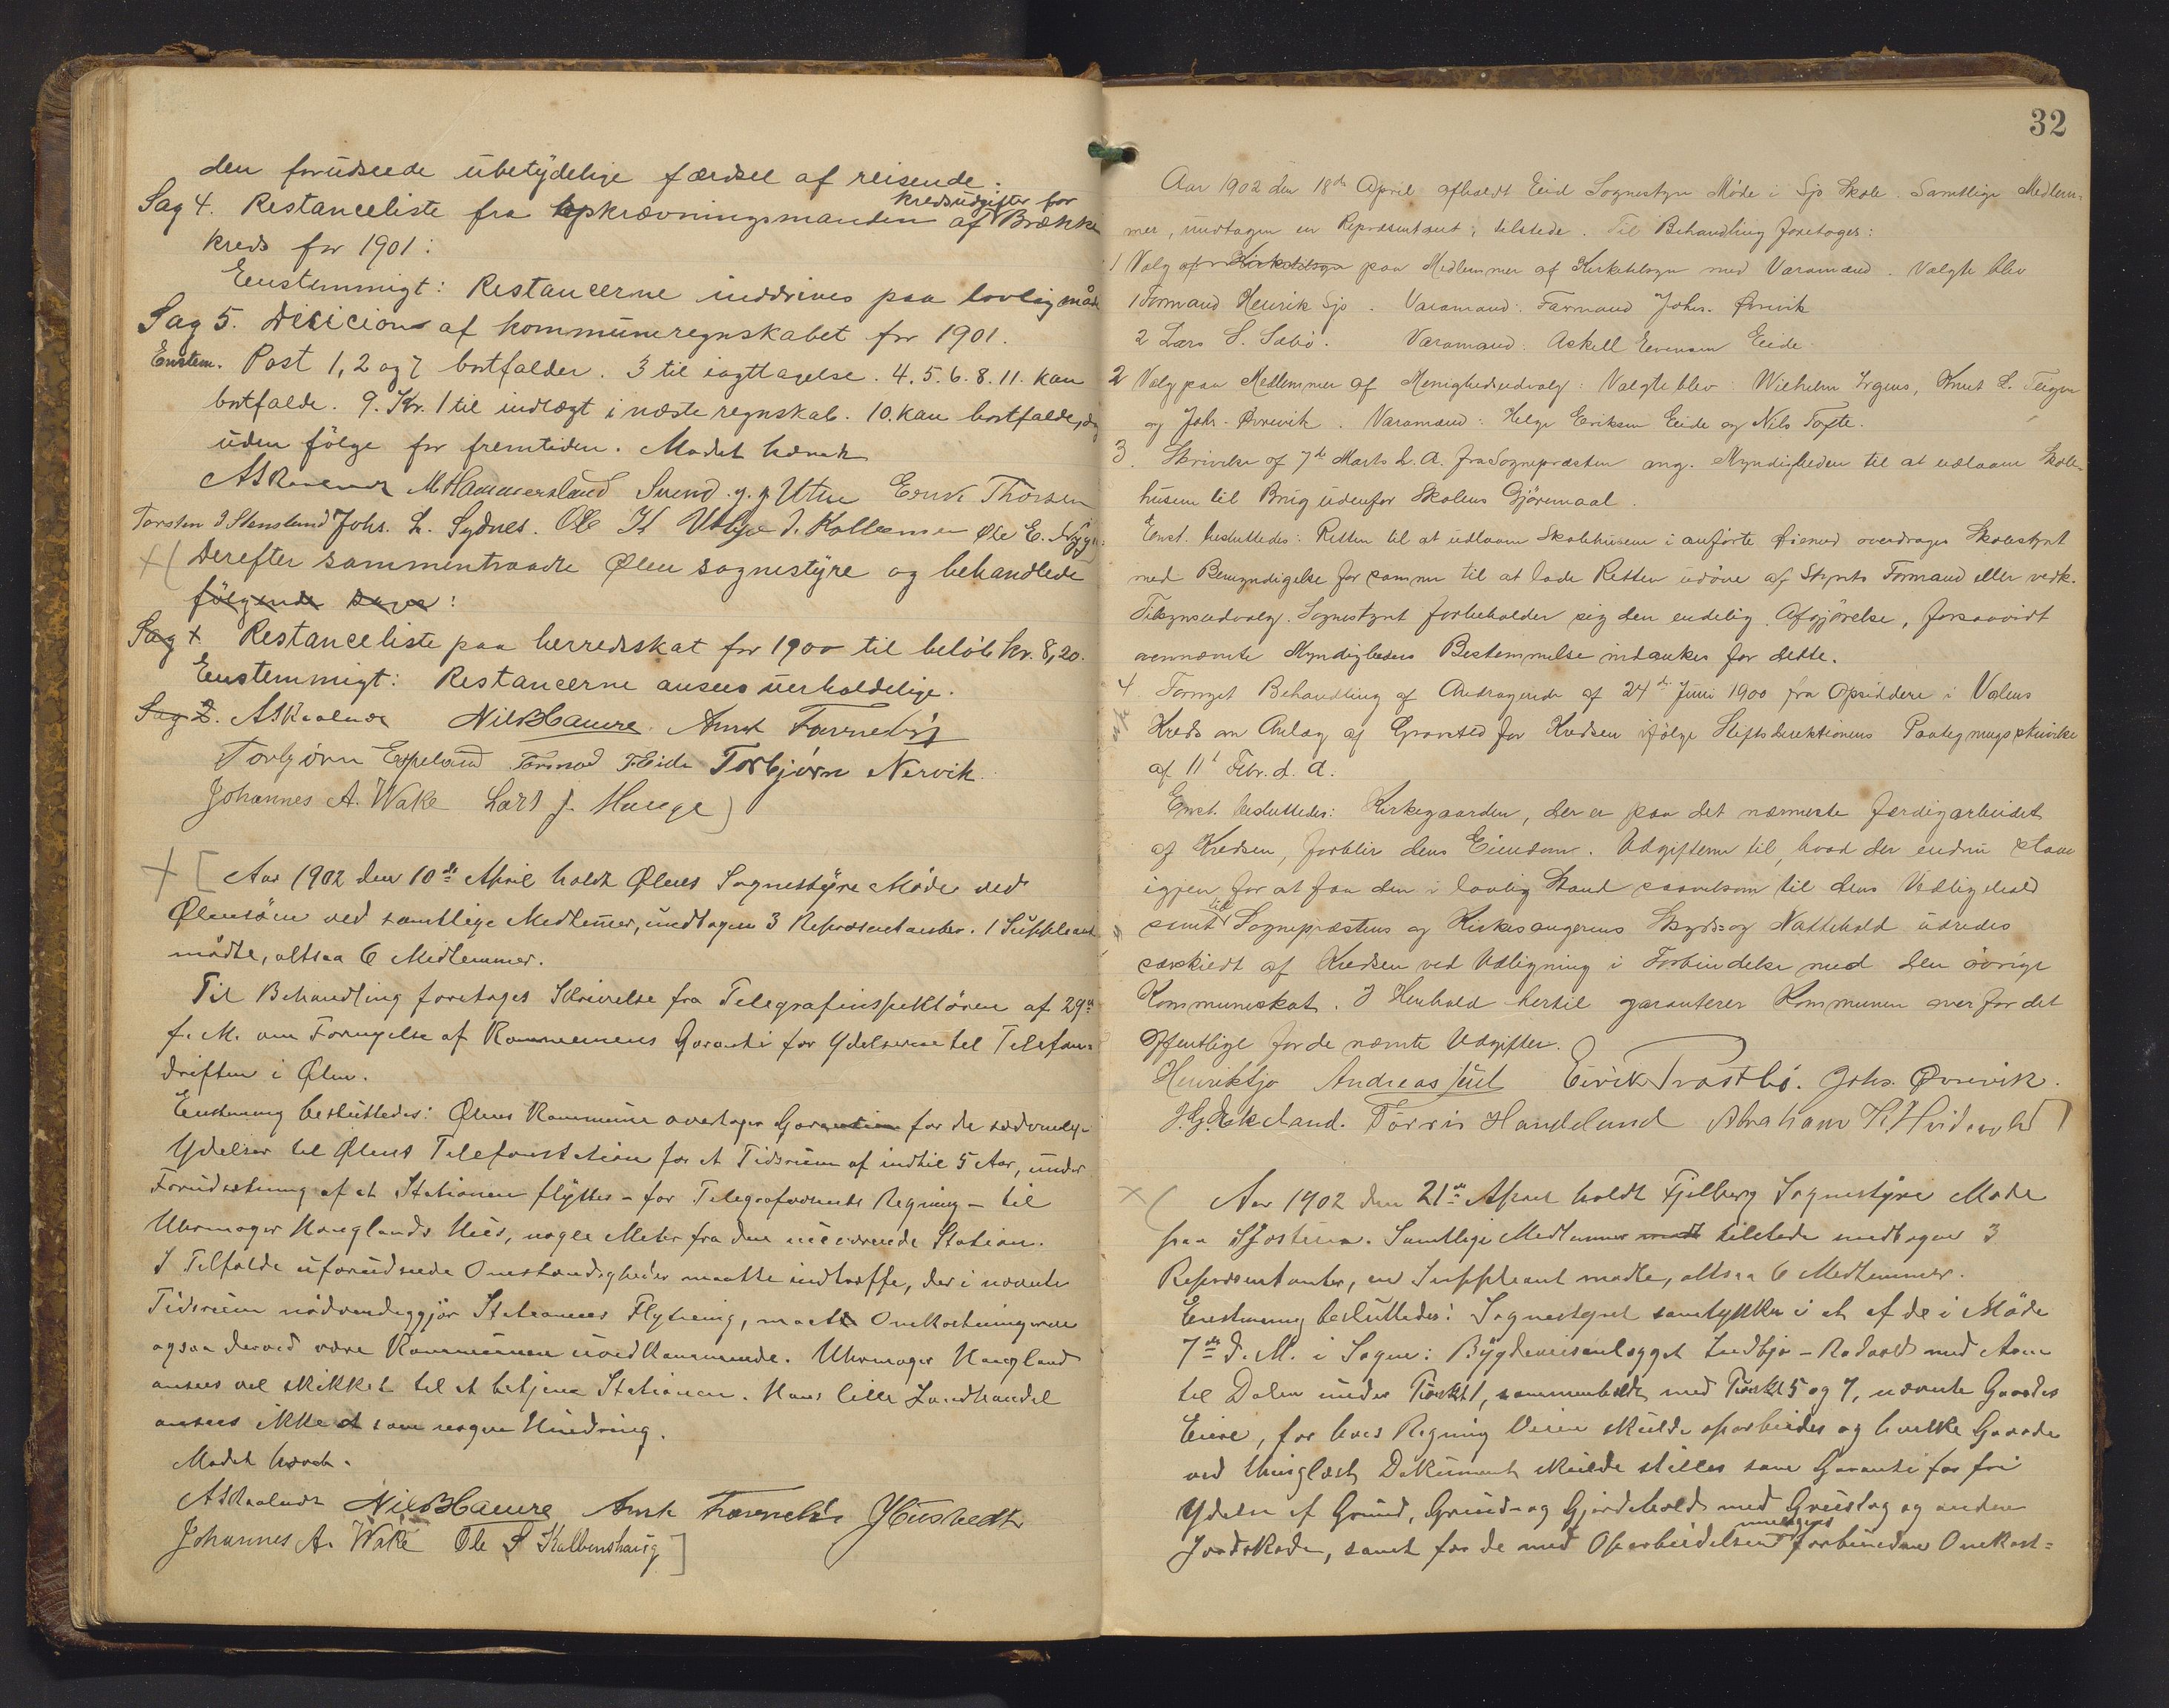 den forudseede ubetydelige færdsel af reisende.
Sag 4. Restanceliste fra opkrævningsmanden af kredsudgifter for Brække
kreds for 1901:
Eenstemmigt: Restancerne inddrives paa lovlig måde
Sag 5. Decicion af kommuneregnskabet for 1901.
Enstem. Post 1, 2 og 7 bortfalder. 3 til iagttagelse. 4. 5. 6. 8. 11. kan
bortfalde. 9. Kr. 1 til indtægt i næste regnskab. 10. kan bortfalde, dog
uden følge for fremtiden. Mødet hævet
M Hammersland Svend Utne Erik Thorsen
Torsten J Stensland Johs. L. Sydnes. Ole H J. Ole E.
+( Derefter sammentraadte Ølen sognestyre og behandlede
følgende sager:
Sag 1 Restanceliste paa herredsskat for 1900 til beløb kr. 8,20.
Eenstemmigt: Restancerne ansees uerholdelige.
Sag 2. Nils
Torbjørn Espeland Tormod Eide Torbjørn Nervik.
Johannes A. Wake Lars J. Hauge)
+ [ Aar 1902 den 10de April holdt Ølens Sognestyre Møde ved
Ølensøen ved samtlige Medlemer, undtagen 3 Repræsentanter. 1 Suppleant
mødte, altsaa 6 Medlemmer.
Til Behandling foretages Skrivelse fra Telegrafinspektøren af 29de
f. M. om Fornyelse af Kommunens Garanti for Ydelserne til Telefon-
driften i Ølen.
Enstemmig besluttedes: Ølens Kommune overtager Garantien for de sædvanlige
Ydelser til Ølens Telefonstation for et Tidsrum af indtil 5 Aar, under
Forudsætning af at Stationen flyttes - for Telegrafvæsenets Regning - til
Uhrmager Hauglands Hus, nogle Meter fra den nuværende Station.
I Tilfælde uforudseede Omstændigheder maatte indtræffe, der i nævnte
Tidsrum nødvendiggjør Stationens Flytning, maatte Omkostningerne
ogsaa derved være Kommunen uvedkommende. Uhrmager Haugland
ansees vel skikket til at betjene Stationen. Hans lille Landhandel
ansees ikke at som nogen Hindring.
Mødet hævet.
Nils
Johannes A. Wake Ole S Kalbenshaug ]
32
Aar 1902 den 18de April afholdt Eid Sognestyre Møde i Sjo Skole. Samtlige Medlem-
mer, undtagen en Repræsentant, tilstede. Til Behandling foretoges:
1 Valg af Kirketilsyn paa Medlemmer af Kirketilsyn med Varamænd. Valgte blev
1 Formand Henrik Sjo. Varamand: Farmand Johs. Øvrevik
2 Lars S. Sæbø. Varamand: Askell Evensen Eide.
2 Valg paa Medlemmer af Menighedsudvalg: Valgte blev Wilhelm Irgens, Knut L. Teigen
og Johs. Øvrevik. Varamænd: Helge Eriksen Eide og Nils Tofte.
3. Skrivelse af 7de Marts d. A. fra Sognepræsten ang. Myndigheden til at udlaane Skole-
husene til Brug udenfor Skolens Gjøremaal.
Enst. besluttedes: Retten til at udlaane Skolehusene i anførte Øiemed overdrages Skolestyret
med Bemyndigelse for samme til at lade Retten udøve af Styrets Formand eller vedk.
Tilsynsudvalg. Sognestyret forbeholder sig den endelig Afgjørelse, forsaavidt
ovennævnte Myndigheders Bestemmelse indankes for dette.
4. Fornyet Behandling af Andragende af 24de Juni 1900 fra Opsiddere i Vatens
Kreds om Anlæg af Gravsted for Kredsen ifølge Stiftsdirektionens Paategningsskrivelse
af 11te Febr. d. A.
Enst. besluttedes: Kirkegaarden, der er paa det nærmeste færdigarbeidet
af Kredsen, forblir dens Eiendom. Udgifterne til, hvad der endnu staar
igjen for at faa den i lovlig Stand saavelsom til dens Vedligehold
samt til Sognepræstens og Kirkesangerens Skyds og Nattehold udredes
særskildt af Kredsen ved Udligning i Forbindelse med den øvrige
Kommuneskat. I Henhold hertil garanterer Kommunen overfor det
offentlige for de nævnte Udgifter.
Henrik Sjo Andreas Juul Eirik Trastbø. Johs. Øvrevik.
J. G. Ekeland. Torris Handeland Abraham H. Hvidevold ]
+ ( Aar 1902 den 21de April holdt Fjelberg Sognestyre Møde
paa Sjøstuen. Samtlige Medlemmer mødt tilstede undtagen 3
Repræsentanter, en Suppleant mødte, altsaa 6 Medlemmer.
Enstemmig besluttedes: Sognestyret samtykker i at af de i Møde
7de d. M. i Sagen: Bygdeveisanlægget Indbjo - Rødvold med Arm
til Dalen under Punkt 1, sammenholdt med Punkt 5 og 7, nævnte Gaardes
Eiere, for hves Regning Veien skulde oparbeides og hvilke Gaarde
ved thinglæst Dokument skulde stilles som Garanti for fri
Ydelse af Grund, Grind- og Gjærdehold med Grustag og anden
Jordskade, samt for de med Oparbeidelsen muligens forbundne Omkost=